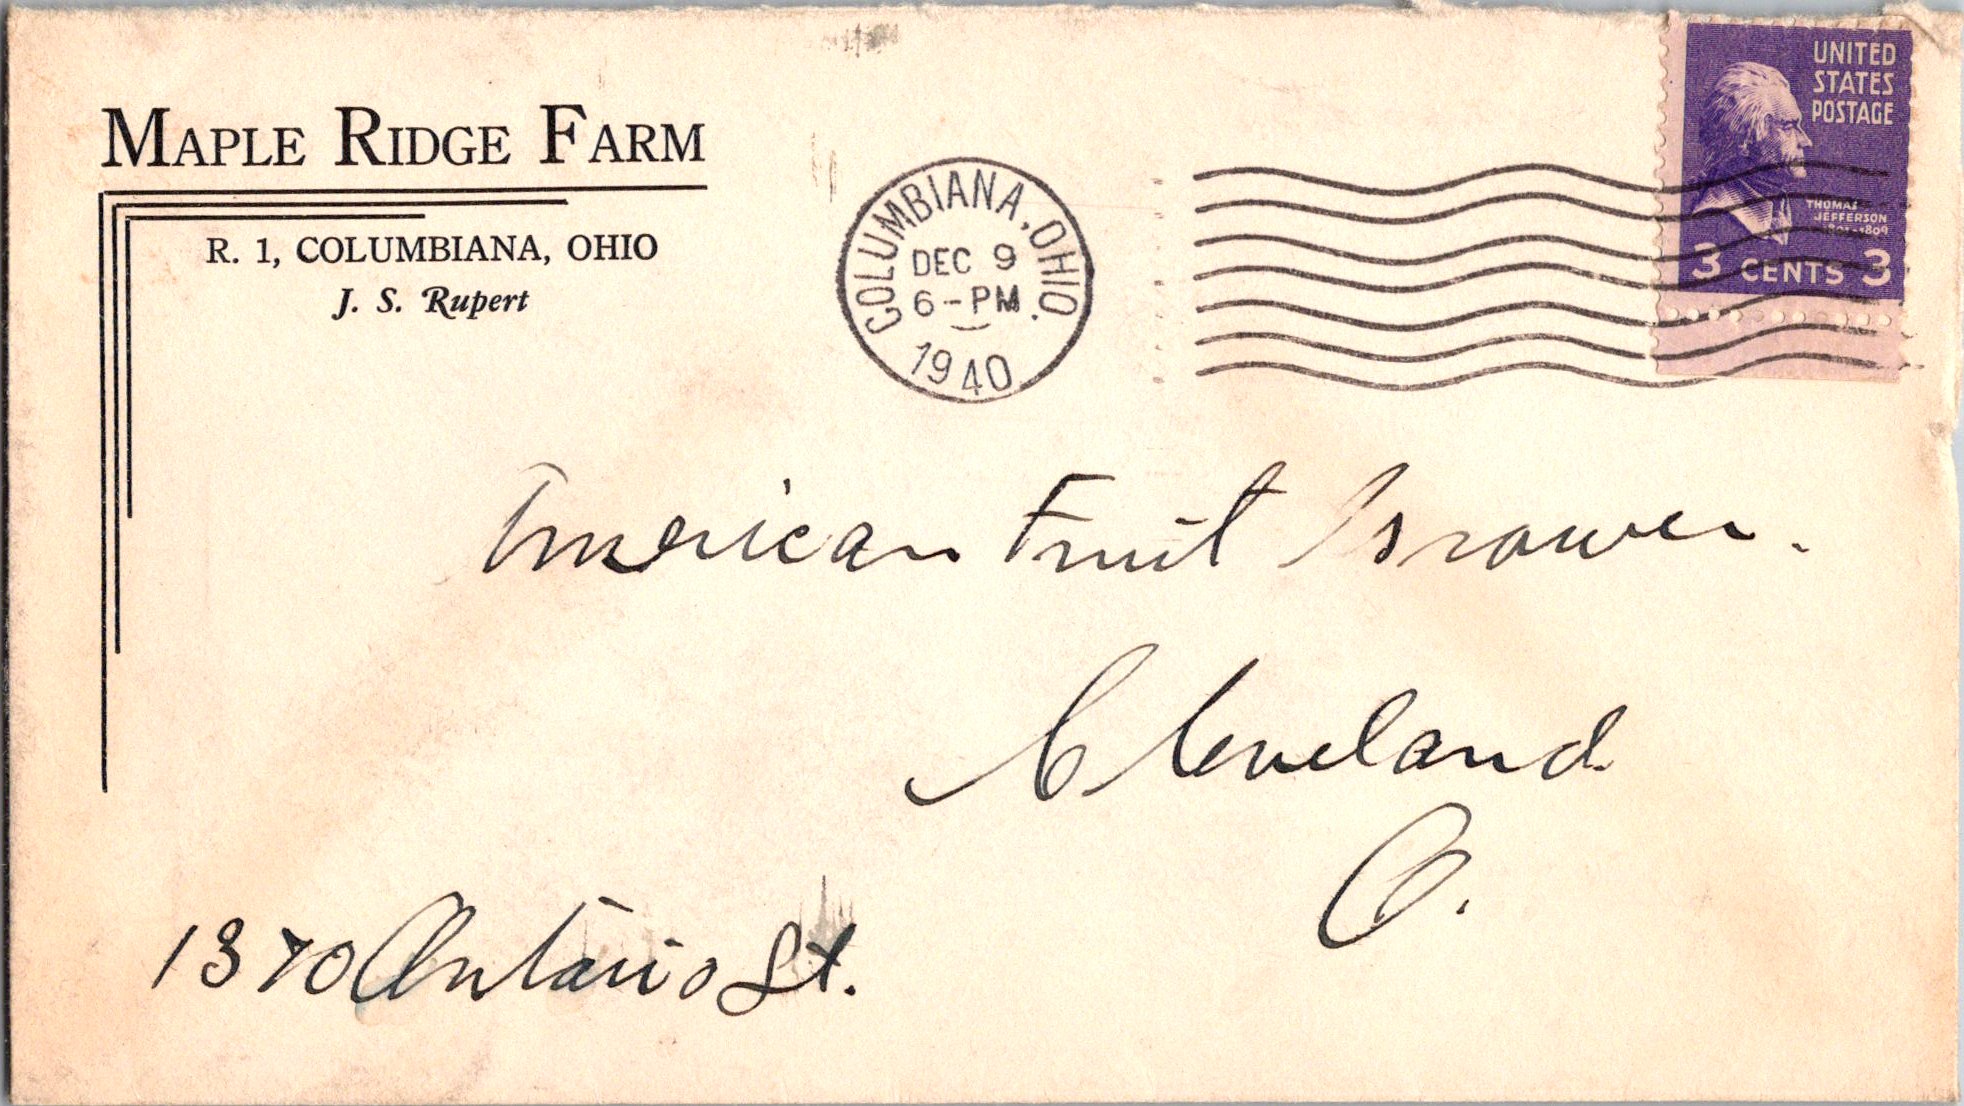 MAPLE RIDGE FARM
R. 1, COLUMBIANA, OHIO
J. S. Rupert
COLUMBIANA, OHIO.
DEC 9
6-PM
1940
UNITED
STATES
POSTAGE
THOMAS
JEFFERSON
1801-1809
3 CENTS 3
American Fruit Grower.
Cleveland
O.
1370 Ontario St.